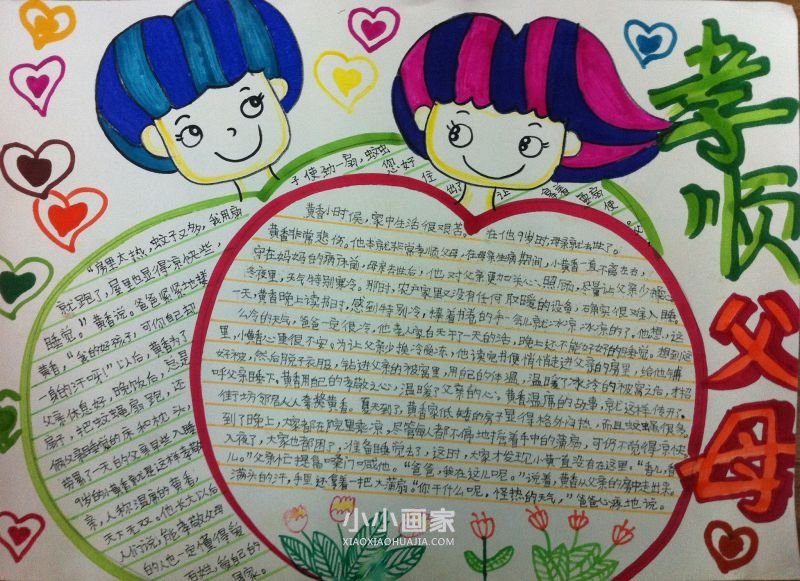 孝顺父母
黄香小时候,家中生活很艰苦。在他9岁时,母亲就去世了。
黄香非常悲伤。他本就非常孝顺父母,在母亲生病期间,小黄香一直不离左右,
守在妈妈的病床前,母亲去世后,他对父亲更加关心、照顾,尽量让父亲少操心。
冬夜里,天气特别寒冷。那时,农户家里又没有任何取暖的设备,确实很难入睡。
一天,黄香晚上读书时,感到特别冷,捧着书卷的手一会儿就冰凉冰凉的了。他想,这
么冷的天气,爸爸一定很冷,他老人家白天干了一天的活,晚上还不能好好的睡觉。想到这
里,小黄香心里很不安。为让父亲少挨冷受冻,他读完书便悄悄走进父亲的房里,给他铺
好被,然后脱了衣服,钻进父亲的被窝里,用自己的体温,温暖了冰冷的被窝之后,才招
呼父亲睡下。黄香用自己的孝敬之心,温暖了父亲的心。黄香温席的故事,就这样传开了,
街坊邻居人人夸奖黄香。夏天到了,黄香家低矮的房子显得格外闷热,而且蚊蝇很多。
到了晚上,大家都在院里乘凉,尽管每人都不停地摇着手中的蒲扇,可仍不觉得凉快。
入夜了,大家也都困了,准备睡觉去了,这时,大家才发现小黄香没有在这里。“香儿,香
儿。”父亲忙提高嗓门喊他。“爸爸,我在这儿呢。”说着,黄香从父亲的房中走出来。
满头的汗,手里还拿着一把大蒲扇。“你干什么呢,怪热的天气,”爸爸心疼地说。
“房里太热,蚊子又多,我用扇
子使劲一扇,蚊虫
就跑了,屋里也显得凉快些,
您好
睡觉。”黄香说。爸爸紧紧地搂住
黄香,“我的好孩子,可你自己却
出了
一身的汗呀!”以后,黄香为了
让
父亲休息好,晚饭后,总是
扇子,把蚊蝇扇跑,还
劳累了一天的父亲早些入睡。
9岁的小黄香就是这样孝敬父
亲,人称温席的黄香,
天下无双。他长大以后,
人们说,能孝敬父母
的人,也一定懂得爱
百姓,爱自己的
国家。
小小画家
XIAOXIAOHUAJIA.COM